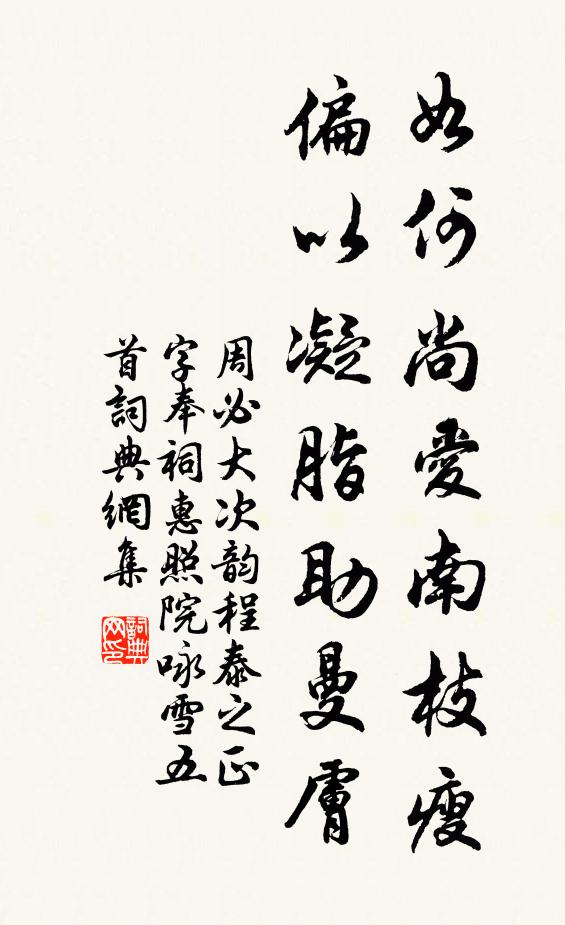 如何尚愛南枝瘦
偏以凝脂助曼膚
周必大次韵程泰之正
字奉祠惠照院咏雪五
首詞典網集
詞典網印